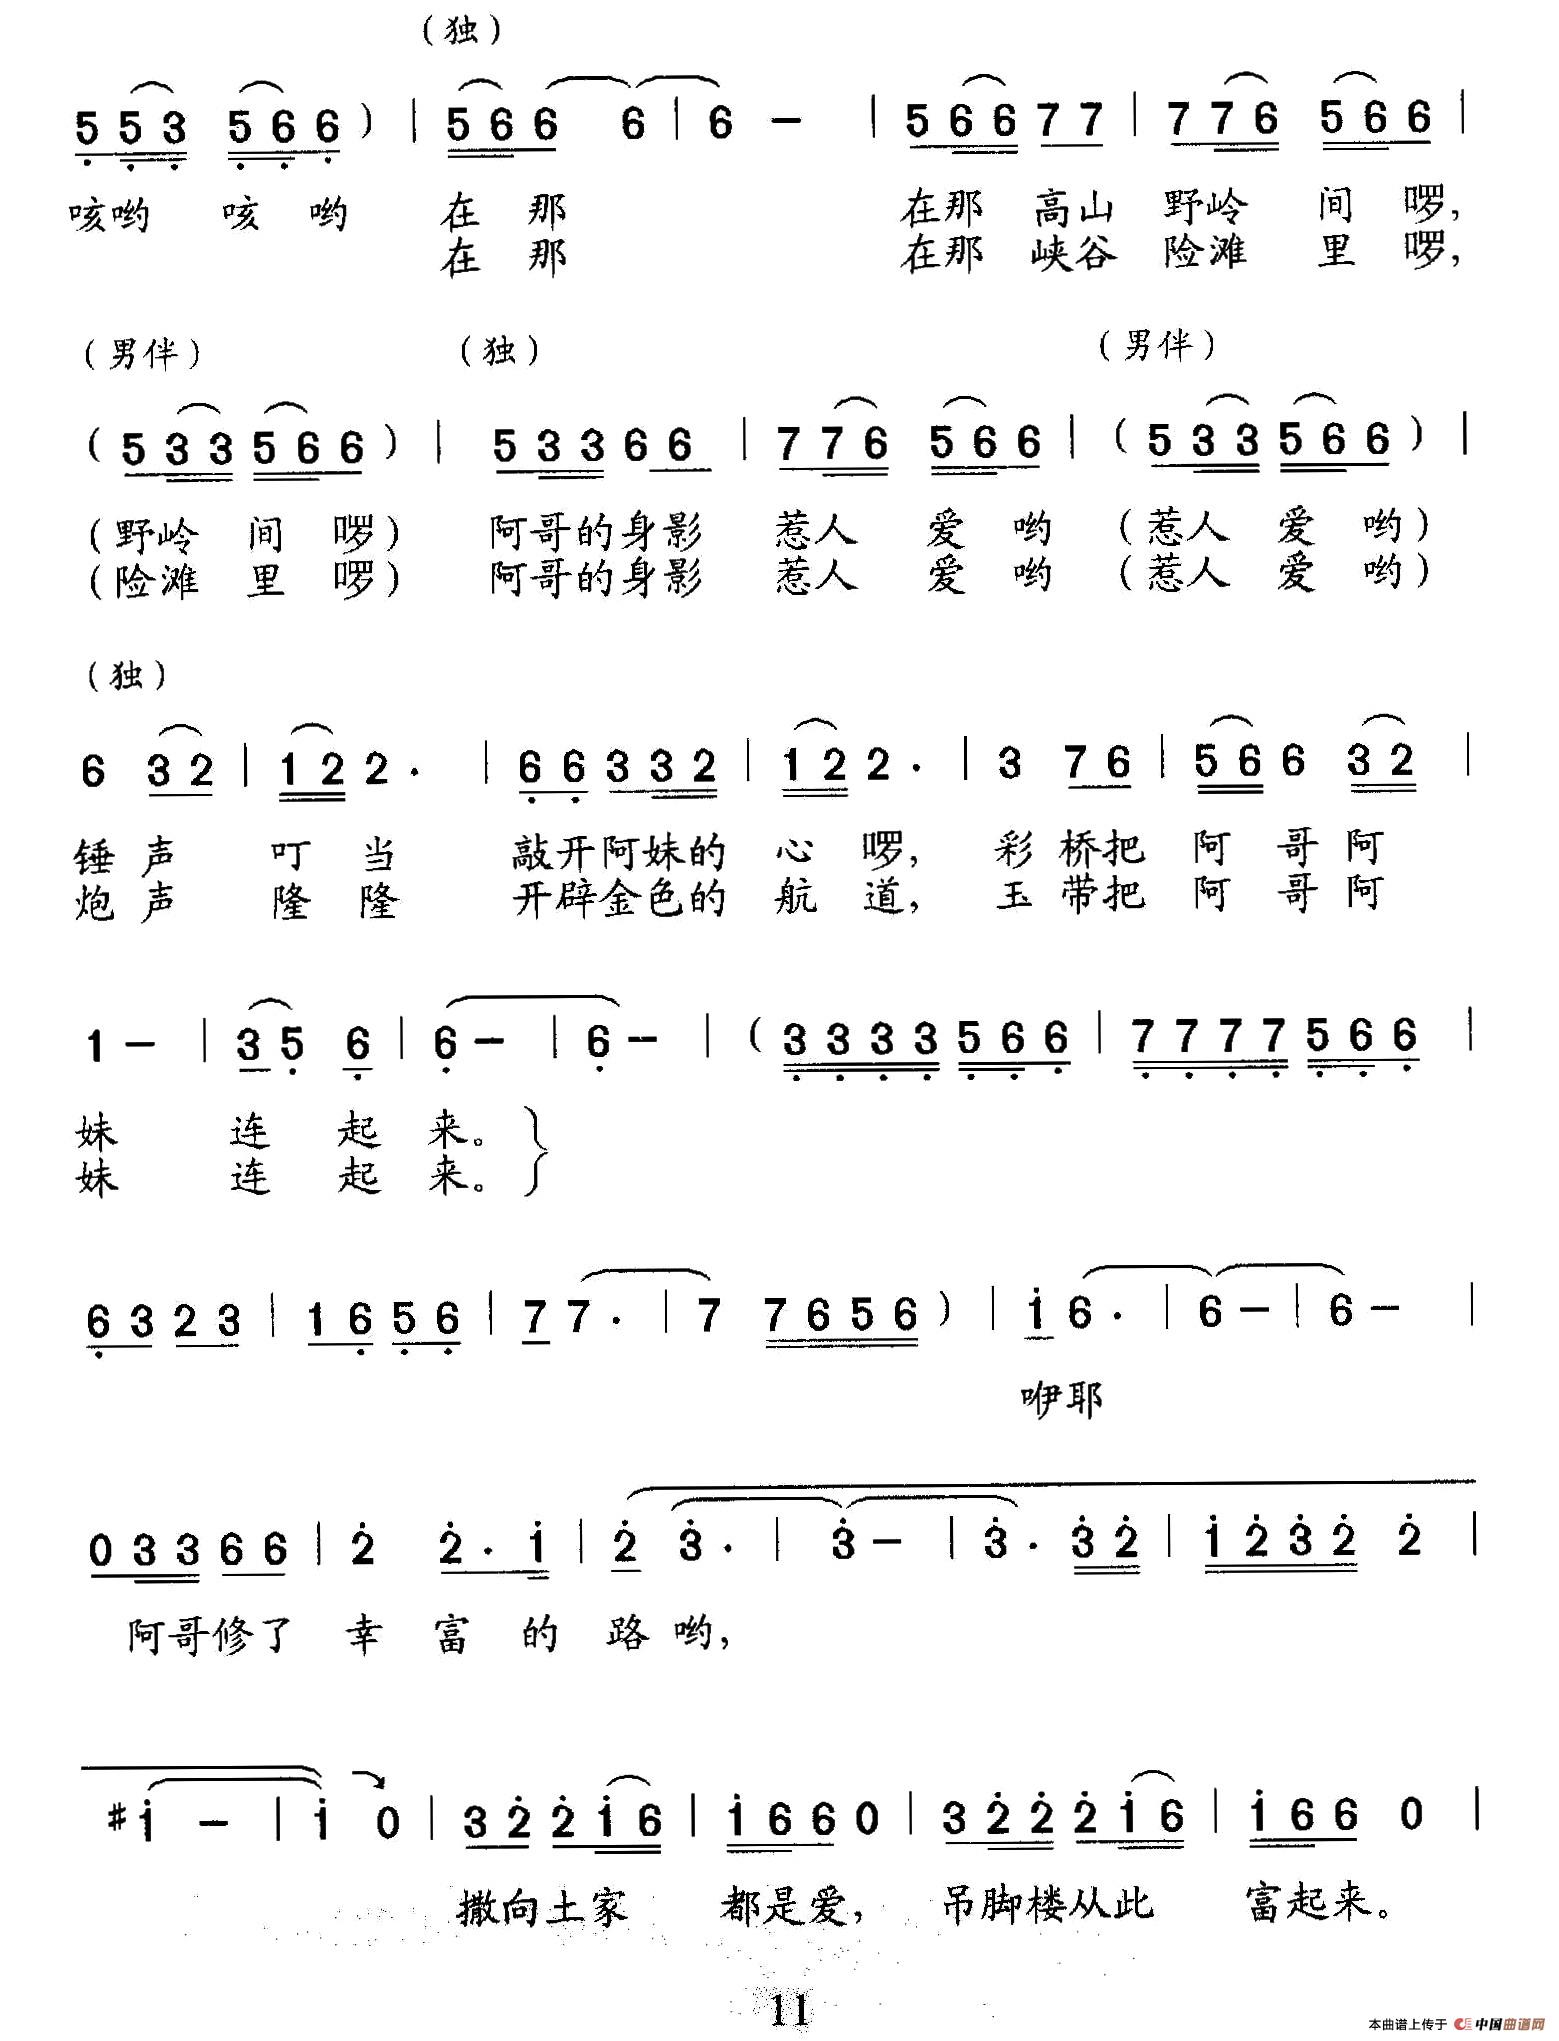 （独）
5 5 3 5 6 6 ） | 5 6 6 6 | 6 － | 5 6 6 7 7 | 7 7 6 5 6 6 |
咳哟 咳 哟 在 那 在那 高山 野岭 间 啰，
在 那 在那 峡谷 险滩 里 啰，
（男伴） （独） （男伴）
（ 5 3 3 5 6 6 ） | 5 3 3 6 6 | 7 7 6 5 6 6 | （ 5 3 3 5 6 6 ） |
（野岭 间 啰） 阿哥的身影 惹人 爱 哟 （惹人 爱 哟）
（险滩 里 啰） 阿哥的身影 惹人 爱 哟 （惹人 爱 哟）
（独）
6 3 2 | 1 2 2 . | 6 6 3 3 2 | 1 2 2 . | 3 7 6 | 5 6 6 3 2 |
锤 声 叮 当 敲开阿妹的 心 啰， 彩 桥把 阿 哥 阿
炮 声 隆 隆 开辟金色的 航 道， 玉 带把 阿 哥 阿
1 － | 3 5 6 | 6 － | 6 － | （ 3 3 3 3 5 6 6 | 7 7 7 7 5 6 6 |
妹 连 起 来。
妹 连 起 来。
6 3 2 3 | 1 6 5 6 | 7 7 . | 7 7 6 5 6 ） | 1 6 . | 6 － | 6 － |
咿耶
0 3 3 6 6 | 2 2 . 1 | 2 3 . | 3 － | 3 . 3 2 | 1 2 3 2 2 |
阿哥修了 幸 富 的 路 哟，
#1 － | 1 0 | 3 2 2 1 6 | 1 6 6 0 | 3 2 2 2 1 6 | 1 6 6 0 |
撒向土家 都是爱， 吊脚楼从此 富起来。
11
本曲谱上传于 中国曲谱网